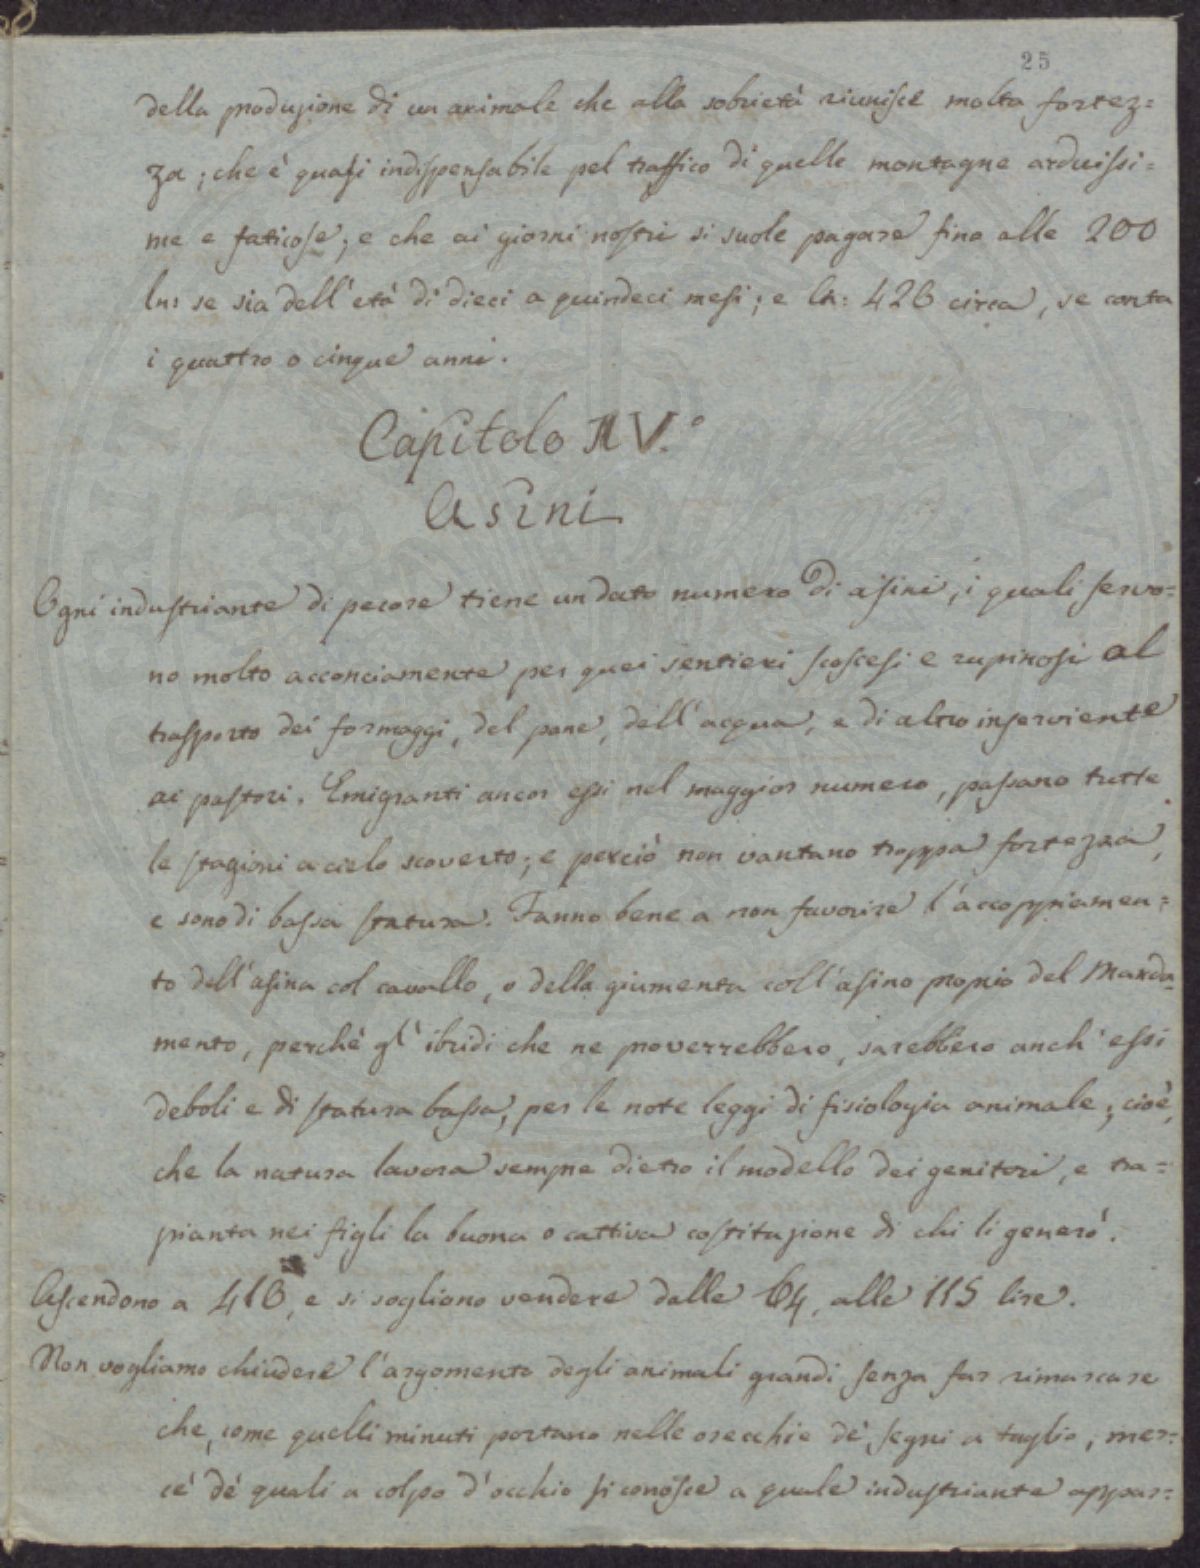 25
della produzione di un animale che alla sobrietà riunisce molta fortez=
za; che è quasi indispensabile pel traffico di quelle montagne arduissi=
me e faticose; e che ai giorni nostri si suole pagare fino alle 200
ln: se sia dell'età di dieci a quindeci mesi; e ln: 426 circa, se conta
i quattro o cinque anni.
Capitolo IV.°
Asini
Ogni industriante di pecore tiene un dato numero di asini, i quali servo=
no molto acconciamente per quei sentieri scoscesi e rupinosi al
trasporto dei formaggi, del pane, dell'acqua, e di altro inserviente
ai pastori. Emigranti ancor essi nel maggior numero, passano tutte
le stagioni a cielo scoverto; e perciò non vantano troppa fortezza,
e sono di bassa statura. Fanno bene a non favorire l'accoppiamen=
to dell'asina col cavallo, o della giumenta coll'asino propio del Manda=
mento, perchè gl'ibridi che ne proverrebbero, sarebbero anch'essi
deboli e di statura bassa, per le note leggi di fisiologia animale; cioè,
che la natura lavora sempre dietro il modello dei genitori, e tra=
pianta nei figli la buona o cattiva costituzione di chi li generò.
Ascendono a 416, e si sogliono vendere dalle 64, alle 115 lire.
Non vogliamo chiudere l'argomento degli animali grandi senza far rimarcare
che, come quelli minuti portano nelle orecchie de' segni a taglio, mer=
cè de' quali a colpo d'occhio si conosce a quale industriante appar=